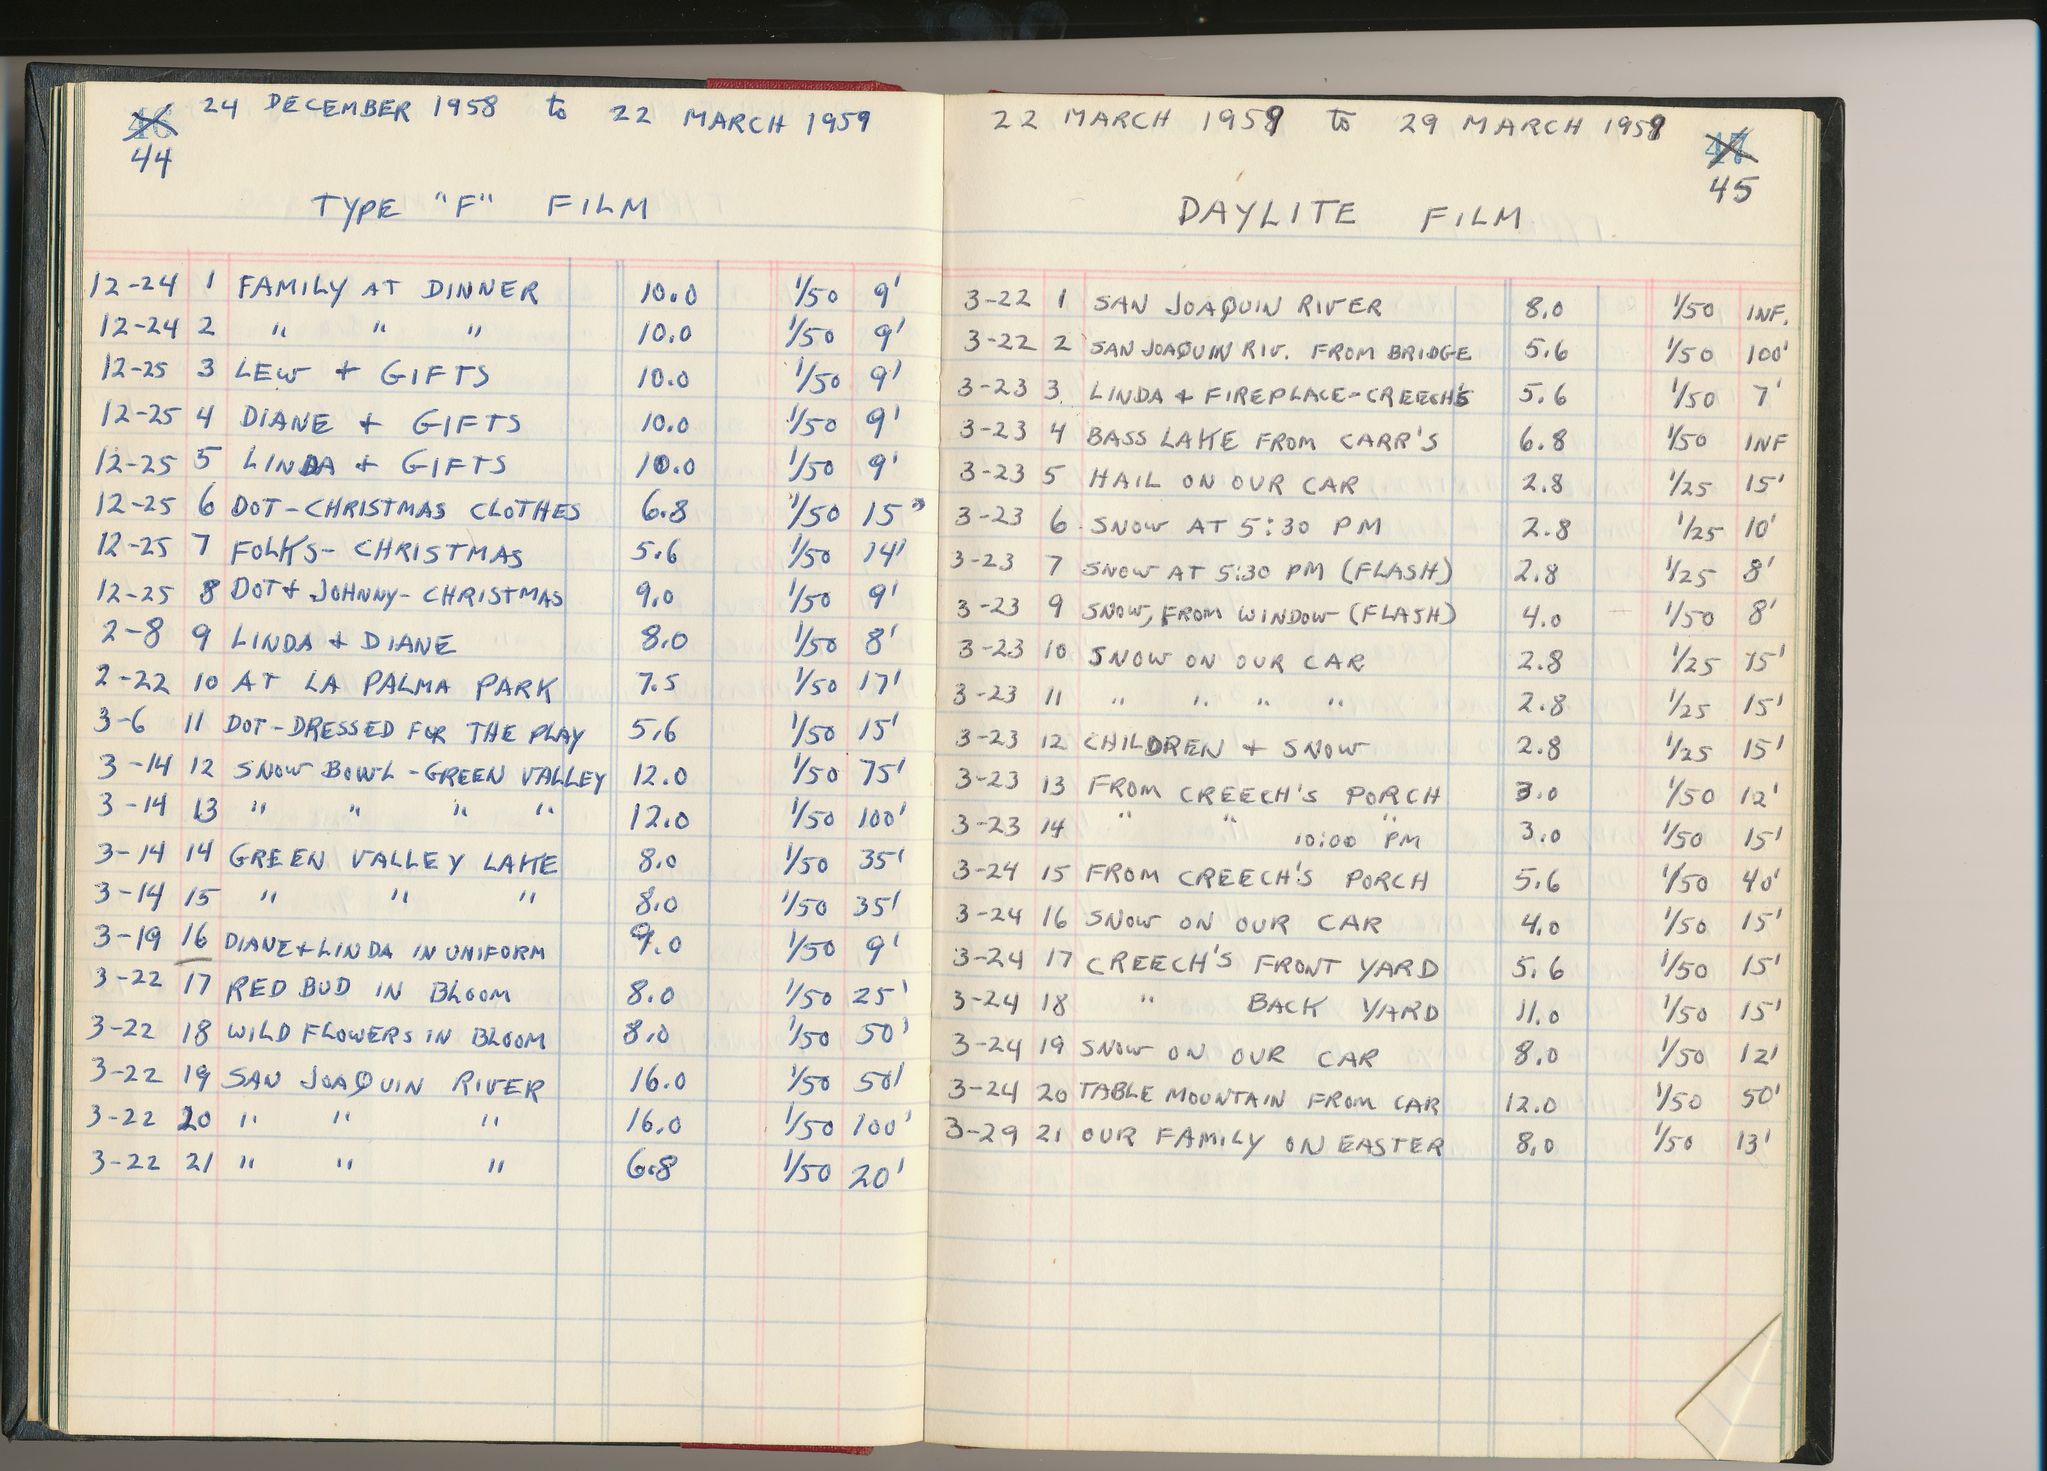 46
44
24 DECEMBER 1958 to 22 MARCH 1959
TYPE "F" FILM
12-24 1 FAMILY AT DINNER 10.0 1/50 9'
12-24 2 " " " 10.0 1/50 9'
12-25 3 LEW + GIFTS 10.0 1/50 9'
12-25 4 DIANE + GIFTS 10.0 1/50 9'
12-25 5 LINDA + GIFTS 10.0 1/50 9'
12-25 6 DOT-CHRISTMAS CLOTHES 6.8 1/50 15'
12-25 7 FOLKS- CHRISTMAS 5.6 1/50 14'
12-25 8 DOT + JOHNNY- CHRISTMAS 9.0 1/50 9'
2-8 9 LINDA + DIANE 8.0 1/50 8'
2-22 10 AT LA PALMA PARK 7.5 1/50 17'
3-6 11 DOT-DRESSED FOR THE PLAY 5.6 1/50 15'
3-14 12 SNOW BOWL-GREEN VALLEY 12.0 1/50 75'
3-14 13 " " " " 12.0 1/50 100'
3-14 14 GREEN VALLEY LAKE 8.0 1/50 35'
3-14 15 " " " 8.0 1/50 35'
3-19 16 DIANE+LINDA IN UNIFORM 9.0 1/50 9'
3-22 17 RED BUD IN BLOOM 8.0 1/50 25'
3-22 18 WILD FLOWERS IN BLOOM 8.0 1/50 50'
3-22 19 SAN JOAQUIN RIVER 16.0 1/50 50'
3-22 20 " " " 16.0 1/50 100'
3-22 21 " " " 6.8 1/50 20'
22 MARCH 1959 to 29 MARCH 1959
47
45
DAYLITE FILM
3-22 1 SAN JOAQUIN RIVER 8.0 1/50 INF.
3-22 2 SAN JOAQUIN RIV. FROM BRIDGE 5.6 1/50 100'
3-23 3 LINDA + FIREPLACE-CREECH'S 5.6 1/50 7'
3-23 4 BASS LAKE FROM CARR'S 6.8 1/50 INF
3-23 5 HAIL ON OUR CAR 2.8 1/25 15'
3-23 6 SNOW AT 5:30 PM 2.8 1/25 10'
3-23 7 SNOW AT 5:30 PM (FLASH) 2.8 1/25 8'
3-23 9 SNOW, FROM WINDOW (FLASH) 4.0 1/50 8'
3-23 10 SNOW ON OUR CAR 2.8 1/25 15'
3-23 11 " " " " 2.8 1/25 15'
3-23 12 CHILDREN + SNOW 2.8 1/25 15'
3-23 13 FROM CREECH'S PORCH 3.0 1/50 12'
3-23 14 " " " 10:00 PM 3.0 1/50 15'
3-24 15 FROM CREECH'S PORCH 5.6 1/50 40'
3-24 16 SNOW ON OUR CAR 4.0 1/50 15'
3-24 17 CREECH'S FRONT YARD 5.6 1/50 15'
3-24 18 " BACK YARD 11.0 1/50 15'
3-24 19 SNOW ON OUR CAR 8.0 1/50 12'
3-24 20 TABLE MOUNTAIN FROM CAR 12.0 1/50 50'
3-29 21 OUR FAMILY ON EASTER 8.0 1/50 13'